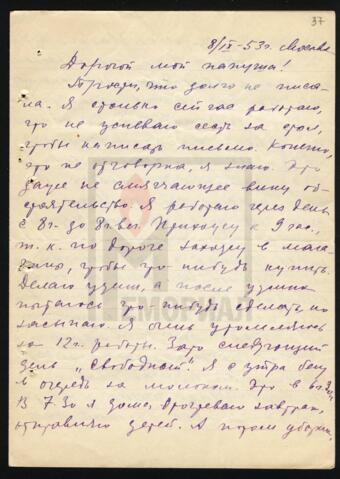 37
8/IX-53г. Москва
Дорогой мой папуша!
Прости, что долго не писа-
ла. Я столько сейчас работаю,
что не успеваю сесть за стол,
чтобы написать письмо. Конечно,
это не отговорка, я знаю. Это
даже не смягчающее вину об-
стоятельство. Я работаю через день
с 8 г. до 8 г. веч. Прихожу к 9 час.,
т.к. по дороге захожу в мага-
зин, чтобы что-нибудь купить.
Делаю ужин, а после ужина
пытаюсь что-нибудь сделать, но
засыпаю. Я очень утомляюсь
за 12 г. работы. Зато следующий
день „свободный“. Я с утра бегу
в очередь за молоком. Это в
В 7.30 я дома, разогреваю завтрак,
отправляю детей. А потом уборка,
МЕМОРИАЛ